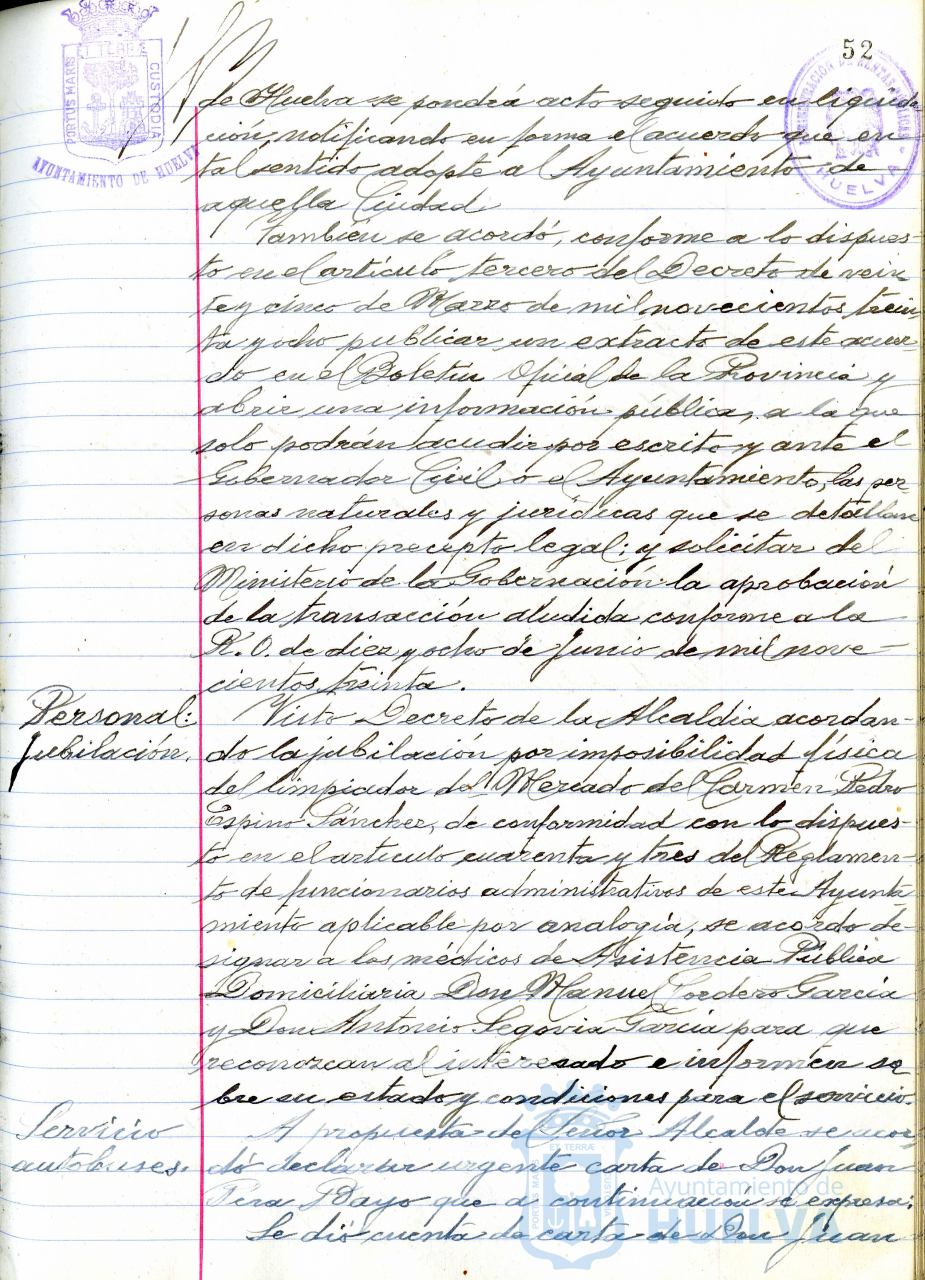 52
PORTUS MARIS ET TERRAE CUSTODIA
AYUNTAMIENTO DE HUELVA
ADMINISTRACION DE RENTAS PUBLICAS
HUELVA
de Huelva se pondrá acto seguido en liquida-
ción, notificando en forma el acuerdo que en
tal sentido adopte al Ayuntamiento de
aquella Ciudad
También se acordó, conforme a lo dispues-
to en el artículo tercero del Decreto de vein
te y cinco de Marzo de mil novecientos trein-
ta y ocho publicar un extracto de este acuer-
do en el Boletin Oficial de la Provincia y
abrir una información pública, a la que
solo podrán acudir por escrito y ante el
Gobernador Civil o el Ayuntamiento, las per-
sonas naturales y jurídicas que se detallan
en dicho precepto legal; y solicitar del
Ministerio de la Gobernación la aprobación
de la transacción aludida conforme a la
R. O. de diez y ocho de Junio de mil nove-
cientos treinta.
Personal:
Jubilación.
Visto Decreto de la Alcaldía acordan-
do la jubilación por imposibilidad física
del limpiador del Mercado del Carmen Pedro
Espino Sánchez, de conformidad con lo dispues-
to en el artículo cuarenta y tres del Reglamen-
to de funcionarios administrativos de este Ayunta
miento aplicable por analogía, se acordo de-
signar a los médicos de Asistencia Pública
Domiciliaria Don Manuel Cordero García
y Don Antonio Segovia García para que
reconozcan al interesado e informen so
bre su estado y condiciones para el servicio.
Servicio
autobuses.
A propuesta del Señor Alcalde se acor-
dó declarar urgente carta de Don Juan
Rayo que a continuación se expresa:
Se dió cuenta de carta de Don Juan
Ayuntamiento de
HUELVA